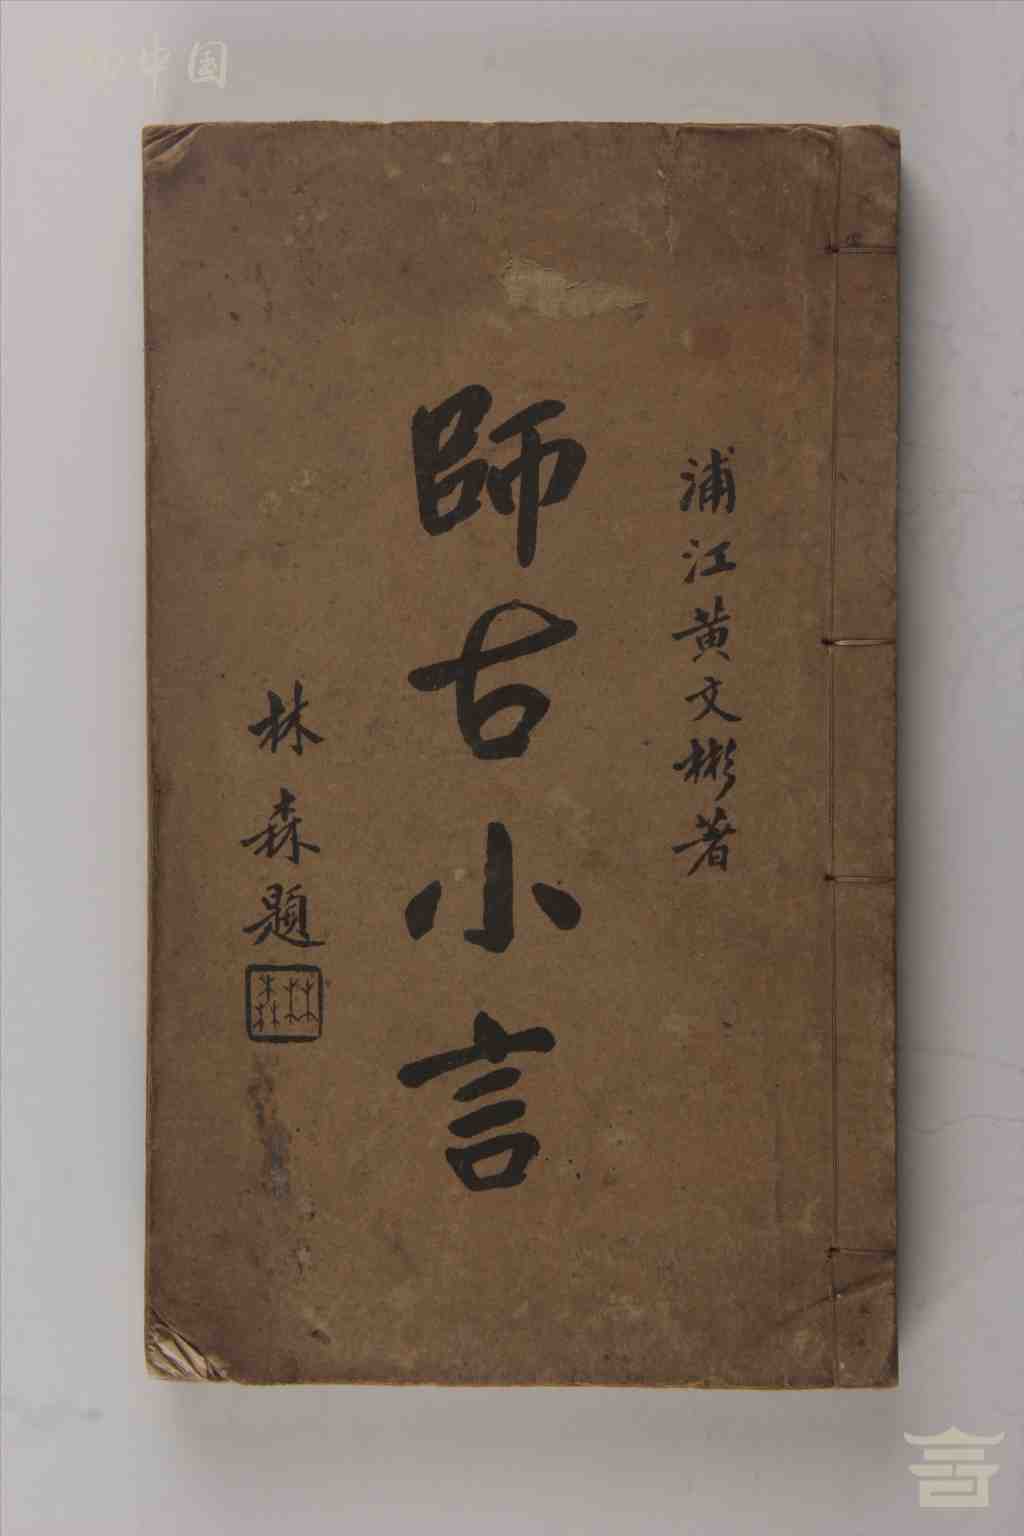 浦江黄文彬著
師古小言
林森題
林森
中国